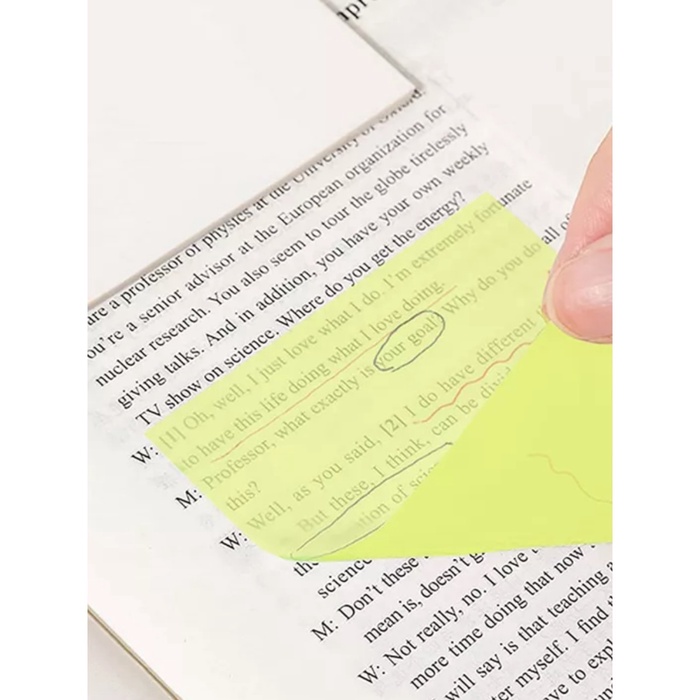 mpr
are a professor of physics at the University of Oxford.
ou're a senior advisor at the European organization for
nuclear research. You also seem to tour the globe tirelessly
giving talks. And in addition, you have your own weekly
TV show on science. Where do you get the energy?
W: [1] Oh, well, I just love what I do. I'm extremely fortunate
to have this life doing what I love doing.
M: Professor, what exactly is your goal? Why do you do all of
this?
W: Well, as you said, [2] I do have different
But these, I think, can be divid
tion of scie
the
science
M: Don't these
mean is, doesn't g
W: Not really, no. I love t
more time doing that now
will say is that teaching a
ter myself. I find t
ve to expl